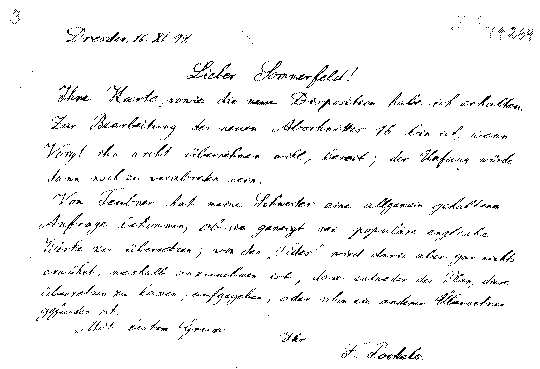 3
19204
Dresden, 16. XI 99.
Lieber Sommerfeld!
Ihre Karte, sowie die neue Disposition habe ich erhalten.
Zur Bearbeitung des neuen Abschnittes 16 bin ich, wenn
Voigt ihn nicht übernehmen will, bereit; der Umfang würde
dann noch zu vereinbaren sein.
Von Teubner hat meine Schwester eine allgemein gehaltene
Anfrage bekommen, ob sie geneigt sei populäre englische
Werke zu übersetzen; von den "Tides" wird darin aber gar nichts
erwähnt, weshalb anzunehmen ist, dass entweder der Plan, diese
übersetzen zu lassen, aufgegeben, oder schon ein anderer Übersetzer
gefunden ist.
Mit bestem Gruss
Ihr
F. Pockels.